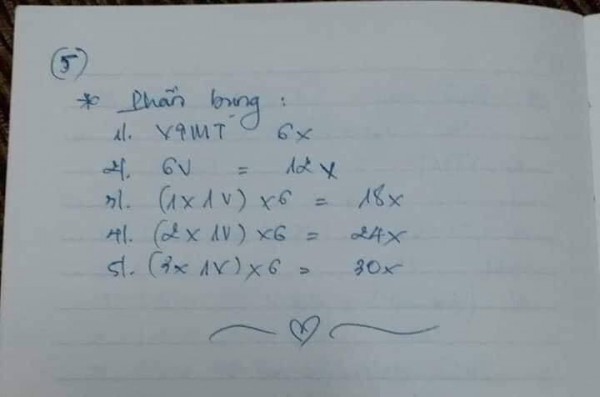 (5)
* Phần bụng :
1/. V9MT 6x
2/. 6V = 12x
3/. (1x 1V) x6 = 18x
4/. (2x 1V) x6 = 24x
5/. (3x 1V) x6 = 30x